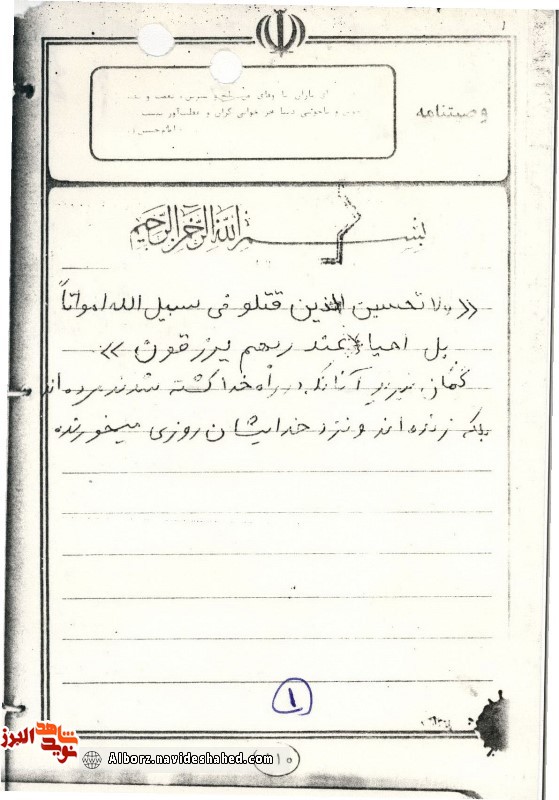 ۱
وصیتنامه
ای یاران با وفای
دنیا هر خوابی گران و
بسم الله الرحمن الرحیم
«ولا تحسبن الذین قتلو فی سبیل الله امواتاً
بل احیاء عند ربهم یرزقون»
گمان نبرید آنانکه در راه خدا کشته شدند مرده‌اند
بلکه زنده‌اند و نزد خدایشان روزی میخورند
۱
۱۰
شاهد
نوید
البرز
Alborz.navideshahed.com